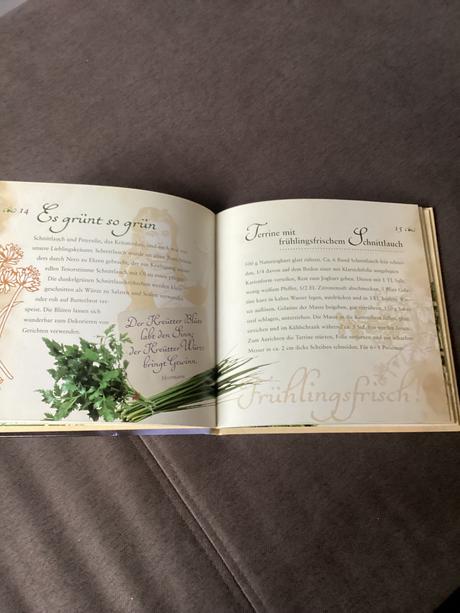 14
Es grünt so grün
Schnittlauch und Petersilie, das Kräuterduo, sind auch heute
unsere Lieblingskräuter. Schnittlauch wurde im alten Rom
den durch Nero zu Ehren gebracht, der zur Kräftigung
Tenorstimme Schnittlauch mit Öl zu essen pflegte.
Die dunkelgrünen Schnittlauchröhrchen werden klein
geschnitten als Würze zu Salaten und Soßen verwendet
oder roh auf Butterbrot ver-
speist. Die Blüten lassen sich
wunderbar zum Dekorieren von
Gerichten verwenden.
Der Kreütter Blüts
labt den Sinn;
der Kreütter Würtz
bringt Gewinn.
15
Terrine mit
frühlingsfrischem Schnittlauch
500 g Naturjoghurt glatt rühren. Ca. 6 Bund Schnittlauch fein schnei-
den, 1/4 davon auf dem Boden einer mit Klarsichtfolie ausgelegten
Kastenform verteilen, Rest zum Joghurt geben. Diesen mit 1 TL Salz,
wenig weißem Pfeffer, 1/2 EL Zitronensaft abschmecken. 7 Blatt Gela-
tine kurz in kaltes Wasser legen, ausdrücken und in 3 EL heißem Was-
ser auflösen. Gelatine der Masse beigeben, gut verrühren.
steif schlagen, unterziehen. Die Masse in die Kastenform füllen, glatt
streichen und im Kühlschrank während ca. 3 Std. fest werden lassen.
Zum Anrichten die Terrine stürzen, Folie entfernen und mit scharfem
Messer in ca. 2 cm dicke Scheiben schneiden. Für 6–8 Personen.
Frühlingsfrisch!